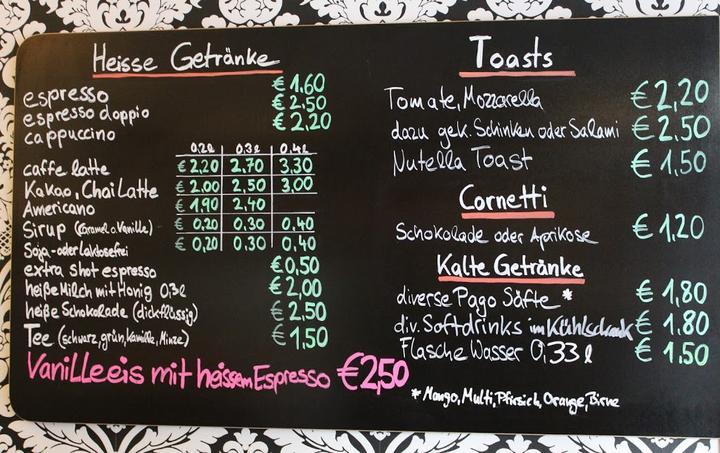 Heisse Getränke
espresso € 1.60
espresso doppio € 2.50
cappuccino € 2,20
0,2l 0,3l 0,4l
caffe latte € 2,20 2,70 3,30
Kakao, Chai Latte € 2.00 2,50 3,00
Americano € 1,90 2,40
Sirup (Caramel o. Vanille) € 0,20 0,30 0,40
Soja- oder laktosefrei € 0,20 0,30 0,40
extra shot espresso € 0,50
heiße Milch mit Honig 0,3l € 2,00
heiße Schokolade (dickflüssig) € 2,50
Tee (schwarz, grün, Kamille, Minze) € 1,50
Vanilleeis mit heissem Espresso € 2,50
Toasts
Tomate, Mozzarella € 2,20
dazu gek. Schinken oder Salami € 2,50
Nutella Toast € 1,50
Cornetti
Schokolade oder Aprikose € 1,20
Kalte Getränke
diverse Pago Säfte * € 1,80
div. Softdrinks im Kühlschrank € 1.80
Flasche Wasser 0,33l € 1,50
* Mango, Multi, Pfirsich, Orange, Birne